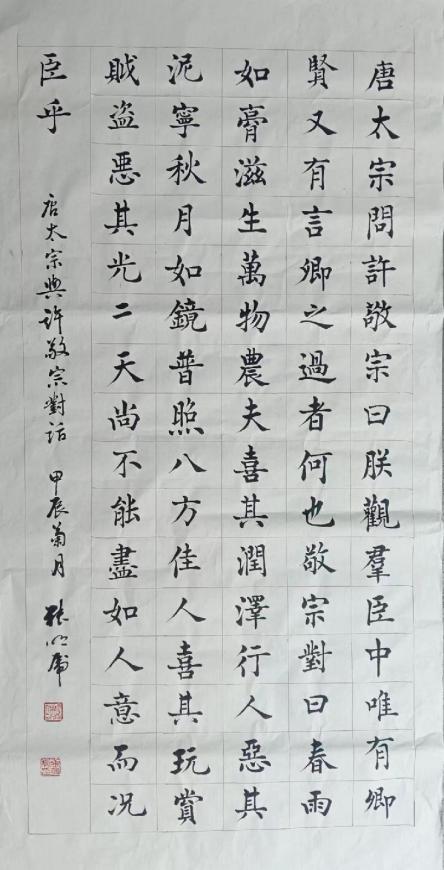 唐太宗問許敬宗曰朕觀羣臣中唯有卿
賢又有言卿之過者何也敬宗對曰春雨
如膏滋生萬物農夫喜其潤澤行人惡其
泥寧秋月如鏡普照八方佳人喜其玩賞
賊盗惡其光二天尚不能盡如人意而况
臣乎
唐太宗與許敬宗對话 甲辰菊月